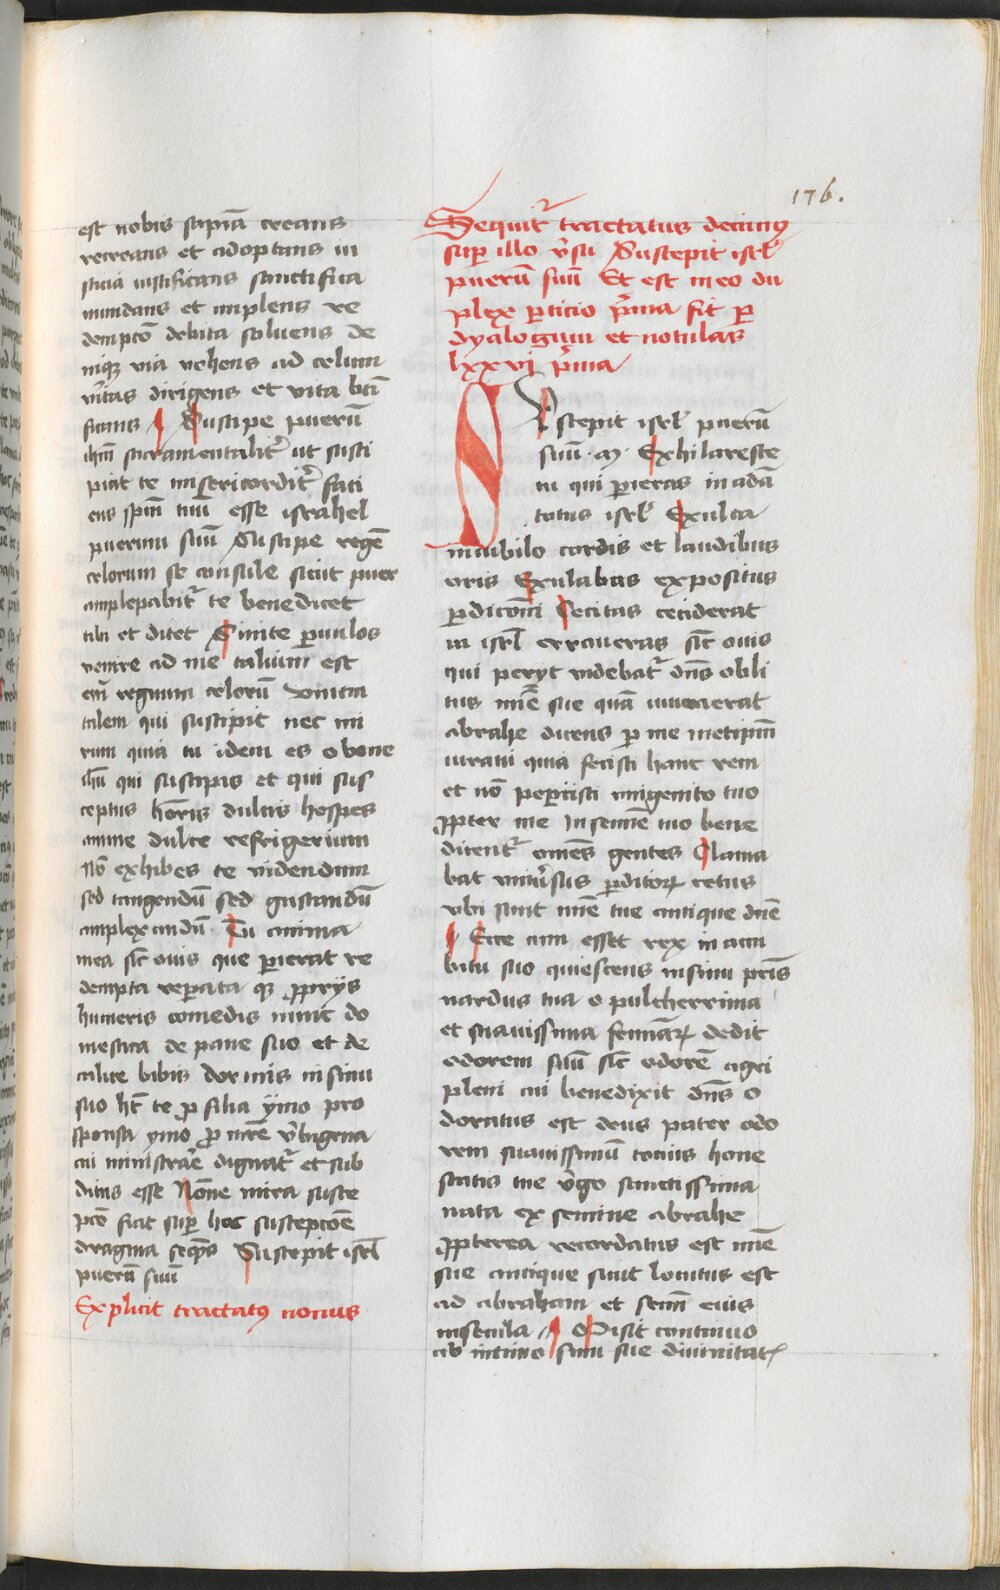 176.
est nobis sapiã creans
recreans et adoptans iu
sticia iustificans sanctifica
mundans et implens re
dempcõ debita soluens de
niqꝫ via vehens ad celum
vĩtas dirigens et vita bti
ficans Suscipe puerũ
ihm̃ sacramentalit᷑ ut susci
piat te misericordit᷑ faci
ens spm̃ tuũ esse israhel
puerum suũ Suscipe regẽ
celorum se consule sicut puer
amplexabit᷑ te benedicet
tibi et dicet Sinite paruulos
venire ad me talium est
em̃ regnum celorũ
talem qui suscipit nec mi
rum quia tu idem es o bone
ihũ qui suscipis et qui sus
ceptus hoĩs dulcis hospes
anime dulce refrigerium
Nõ exhibes te videndum
sed tangendũ sed gustandũ
amplexandũ Tu anima
mea sic̃ ouis que perierat re
dempta reperata qꝫ ꝓprijs
humeris comedis nunc do
mestica de pane suo et de
calice bibis dormis in sinu
suo hꝫ te ꝓ filia ymo pro
sponsa ymo ꝓ mr̃e v̾bigena
cui ministrar̃e dignat᷑ et sub
ditus esse Nõne mira susce
pcõ fiat sup̱ hoc suscepcõe
dragma seq̃ns Suscepit isrl̃
puerũ suũ
Explicit tractatꝰ nonus
Sequit᷑ tractatus decimꝰ
sup̱ illo v̾su Suscepit isrl̃
puerũ suũ Et est in eo du
plex ꝑticio p̃ma fit ꝑ
dyalogum et notulas
lxxvj p̃ma
Suscepit isrl̃ puerũ
suũ Exhilareste
tu qui perieras in adã
totus isrl̃ Exulta
in iubilo cordis et laudibus
oris Exulabas expositus
ꝑdicõni Cecitas ceciderat
in isrl̃ erraueras sic̃ ouis
qui perijt videbat᷑ dñs obli
tus mĩe sue quã iurauerat
abrahe dicens ꝑ me metipm̃
iuraui quia fecisti hanc rem
et nõ pepercisti unigenito tuo
ꝓpter me In semĩe tuo bene
dicent᷑ om̃es gentes Clama
bat vniu̾sus ꝑditoꝝ cetus
vbi sunt mĩe tue antique dñe
Ecce cum esset rex in accu
bitu suo quiescens in sinu pr̃is
nardus tua o pulcherrima
et suauissima feminaꝝ dedit
odorem suũ sic̃ odorẽ agri
pleni cui benedixit dñs O
doratus est deus pater odo
rem suauissimũ tocius hone
statis tue v̾go sanctissima
nata ex semine abrahe
ꝓpterea recordatus est mĩe
sue antique sicut locutus est
ad abraham et semĩ eius
in secula Misit continuo
ab intimo sinu sue diuinitatꝭ